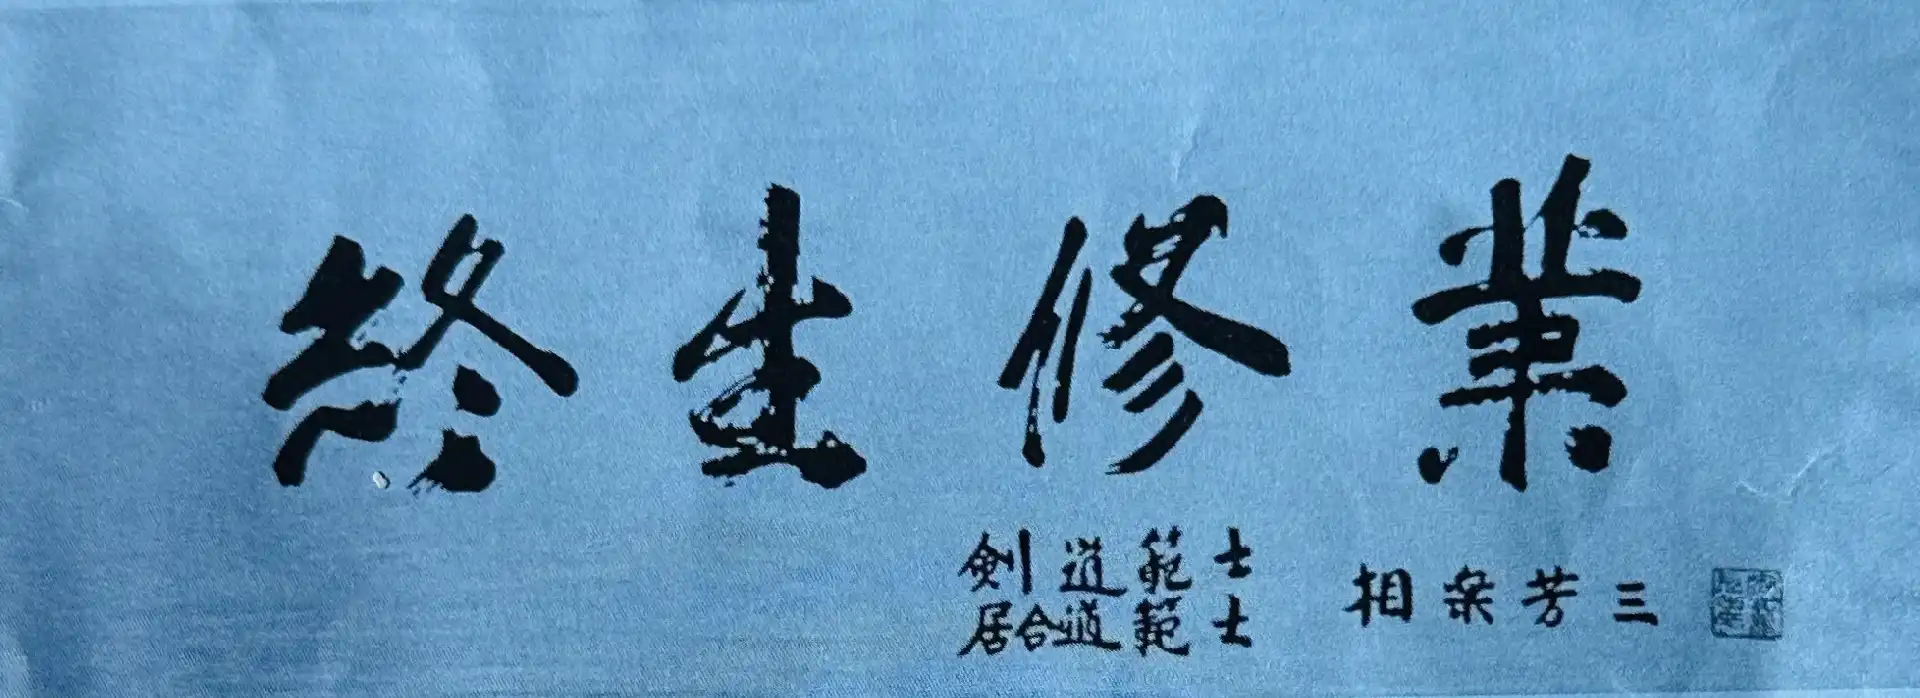 終生修業
剣道範士
居合道範士
相楽芳三